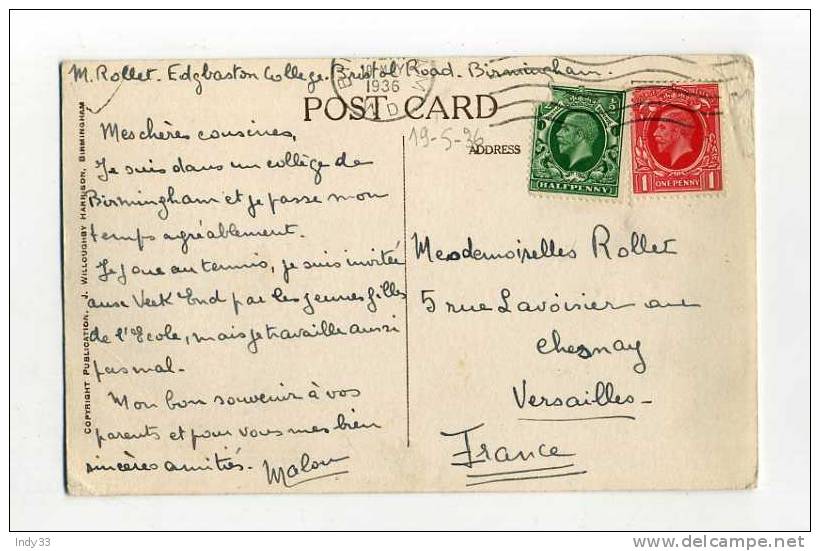 M. Rollet. Edgbaston College. Bristol Road. Birmingham.
1936
POST CARD
19-5-36
ADDRESS
HALFPENNY
1 ONE PENNY 1
COPYRIGHT PUBLICATION, J. WILLOUGHBY HARRISON, BIRMINGHAM
Mes chères cousines,
Je suis dans un collège de
Birmingham et je passe mon
temps agréablement.
Je joue au tennis, je suis invitée
aux Veek End par les jeunes filles
de l'Ecole, mais je travaille aussi
pas mal.
Mon bon souvenir à vos
parents et pour vous mes bien
sincères amitiés. Malou
Mesdemoiselles Rollet
5 rue Lavoisier au
Chesnay
Versailles-
France
Indy33
delcampe.net